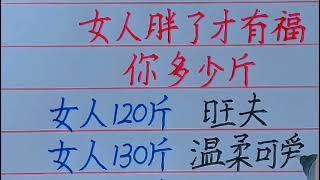 女人胖了才有福
你多少斤
女人120斤 旺夫
女人130斤 温柔可爱